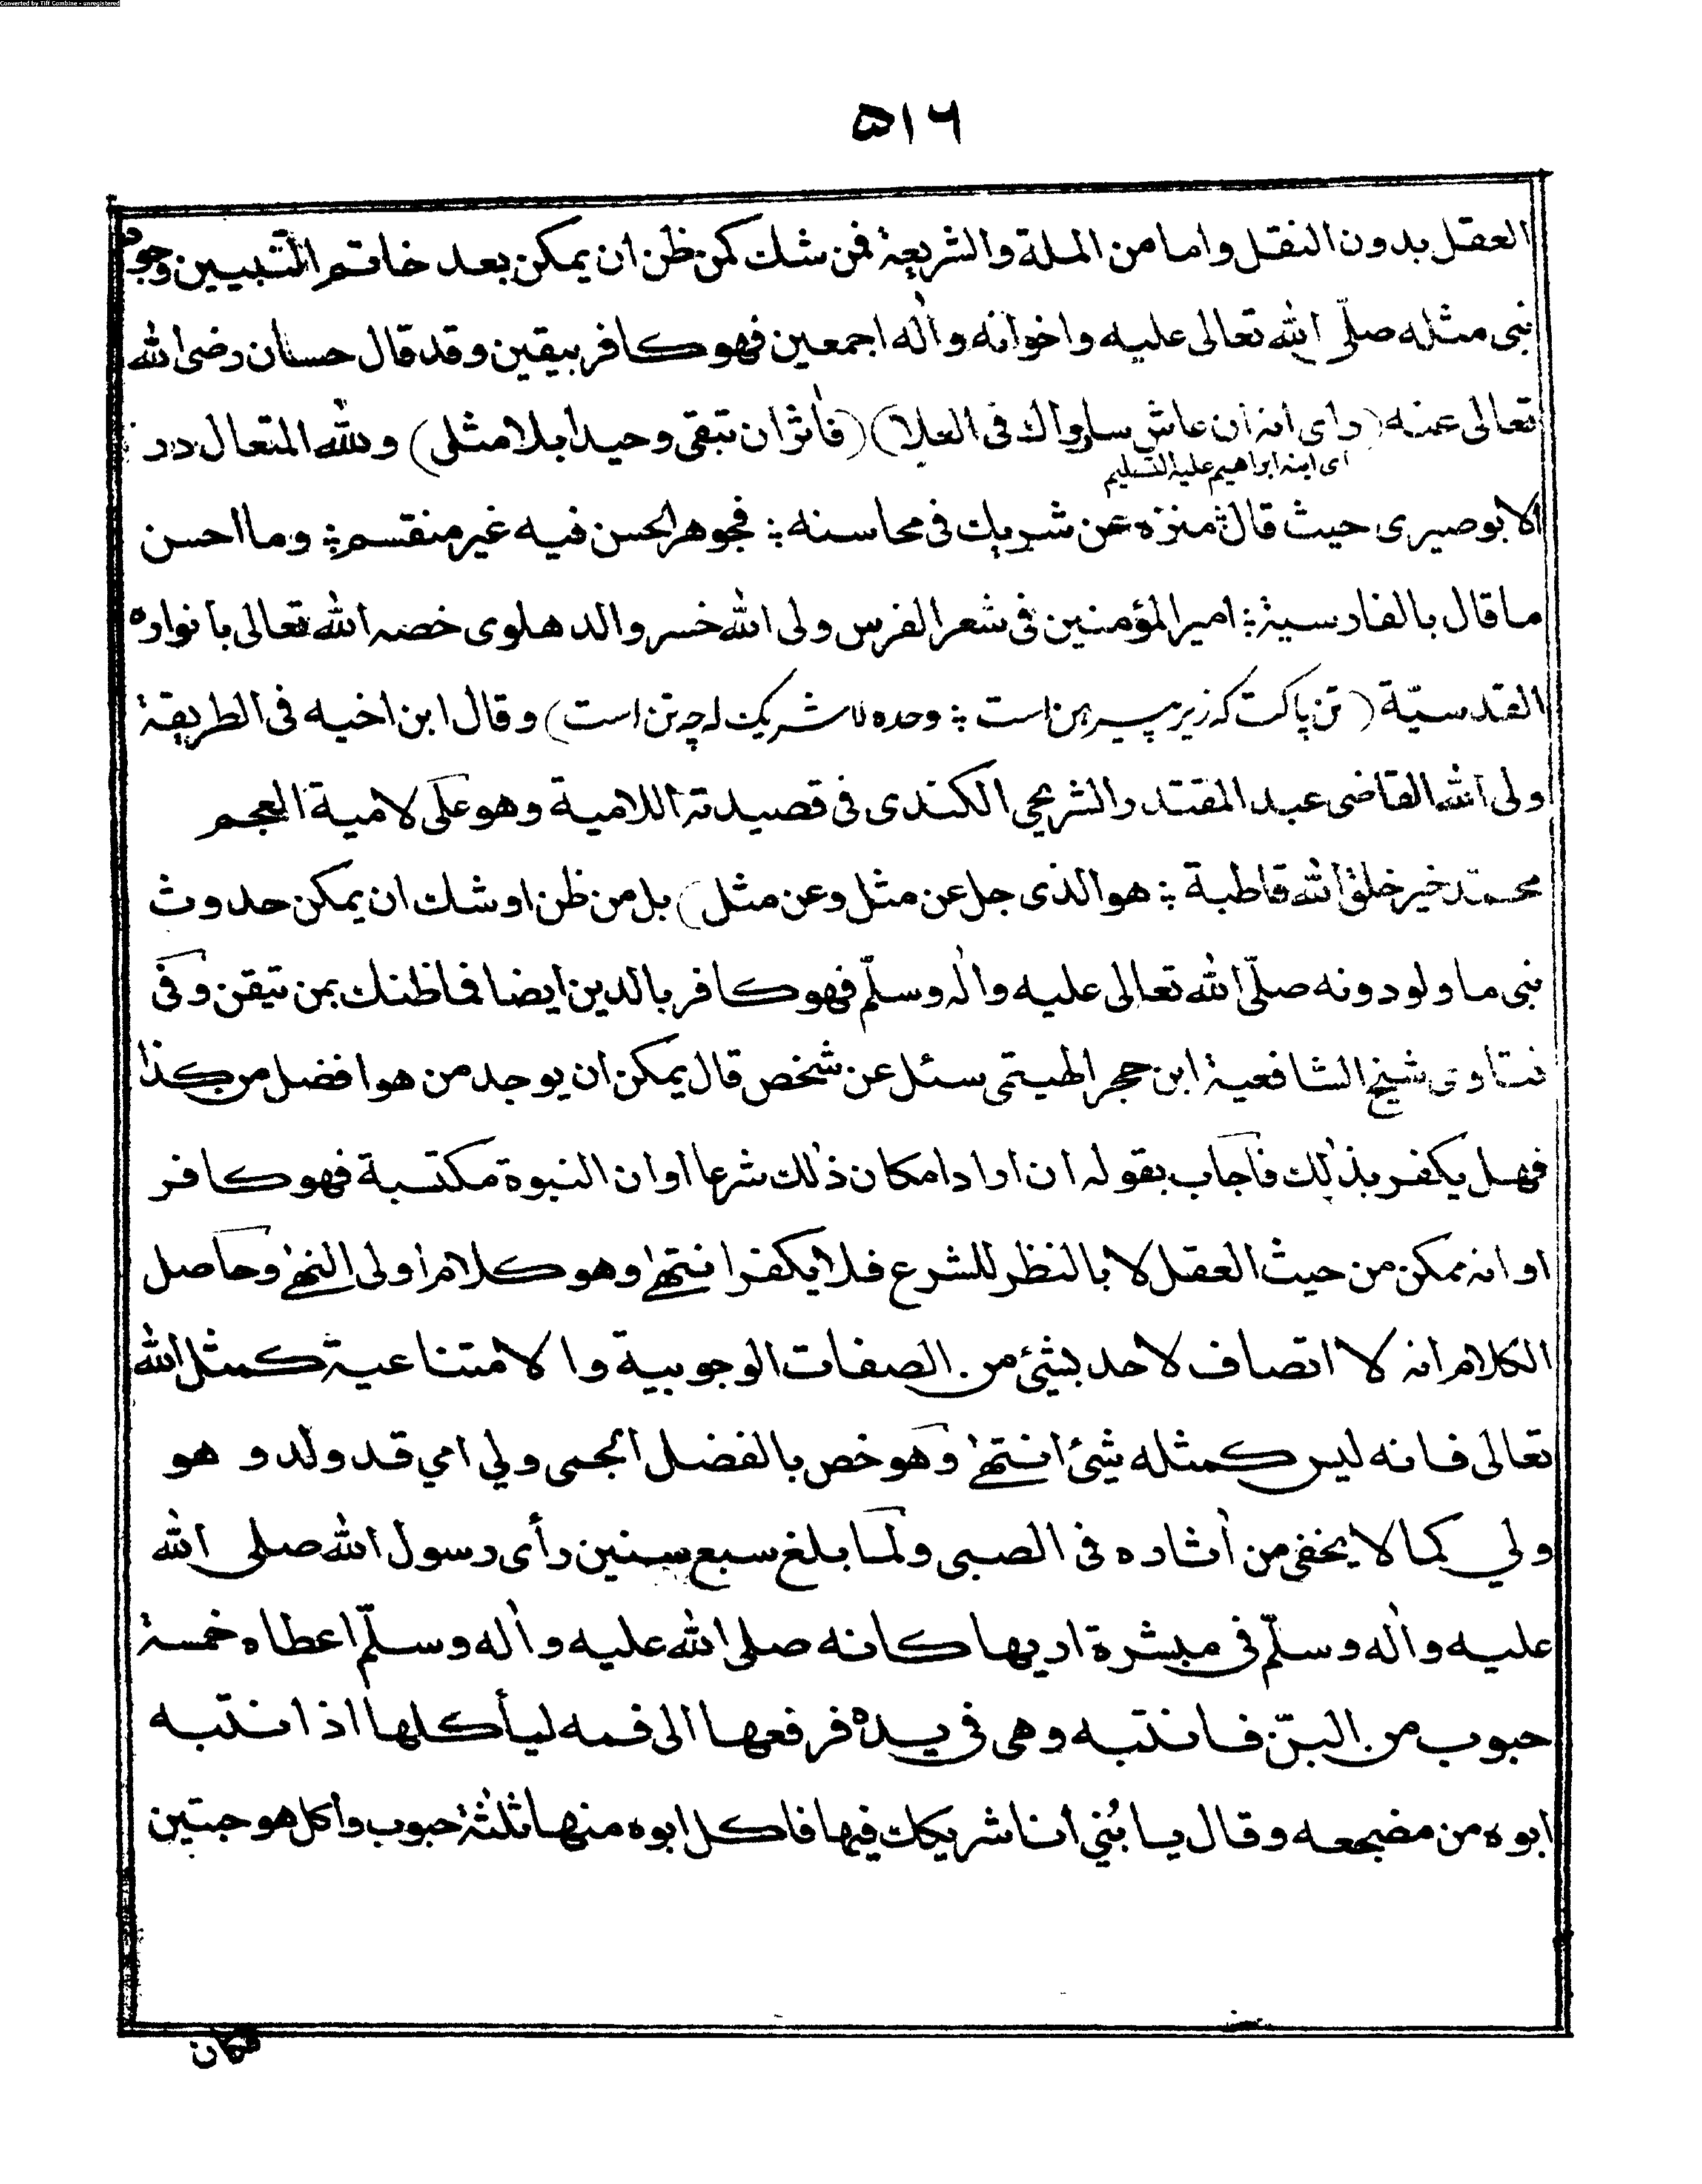 Converted by Tiff Combine - unregistered
۵۱۶
العقل بدون النقل واما من الملة والشريعة فمن شك كمن ظن ان يمكن بعد خاتم النبيين وجود
نبى مثله صلّى الله تعالى عليه واخوانه واٰله اجمعين فهو كافر بيقين وقد قال حسان رضى الله
تعالى عنه (رأى انه ان عاش ساواك فى العلا) (فاٰثر ان تبقى وحيدا بلا مثل) ولله المتعال در
اى ابنه ابراهيم عليه التسليم
الابوصيرى حيث قال منزه عن شريك فى محاسنه ؛ فجوهر الحسن فيه غير منقسم ؛ وما احسن
ما قال بالفارسية ؛ امير المؤمنين فى شعر الفرس ولى الله خسرو الدهلوى خصه الله تعالى بانواره
القدسيّة (تن پاكت كه زير پيرهن است ؛ وحده لا شريك له چه تن است) وقال ابن اخيه فى الطريقة
ولى الله القاضى عبد المقتدر الشريحي الكندى فى قصيدته اللامية وهو على لامية العجم
محمد خير خلق الله قاطبة ؛ هو الذى جل عن مثل وعن مثل) بل من ظن او شك ان يمكن حدوث
نبى ما ولو دونه صلّى الله تعالى عليه واٰله وسلّم فهو كافر بالدين ايضا فما ظنك بمن تيقن وفى
فتاوى شيخ الشافعية ابن حجر الهيتمى سئل عن شخص قال يمكن ان يوجد من هو افضل من كذا
فهل يكفر بذٰلك فاجاب بقوله ان اراد امكان ذٰلك شرعا او ان النبوة مكتسبة فهو كافر
او انه ممكن من حيث العقل لا بالنظر للشرع فلا يكفر انتهٰى وهو كلام اولى النهٰى وحاصل
الكلام انه لا اتصاف لاحد بشئ من الصفات الوجوبية والامتناعية كمثل الله
تعالى فانه ليس كمثله شئ انتهٰى وهو خص بالفضل الجمى ولي امي قد ولد وهو
ولي كما لا يخفى من اٰثاره فى الصبى ولما بلغ سبع سنين رأى رسول الله صلى الله
عليه واٰله وسلّم فى مبشرة اريها كانه صلى الله عليه واٰله وسلّم اعطاه خمسة
حبوب من البرّ فانتبه وهى فى يده فرفعها الى فمه ليأكلها اذ انتبه
ابوه من مضجعه وقال يا بُني انا شريكك فيها فاكل ابوه منها ثلٰثة حبوب واكل هو حبتين
فكان